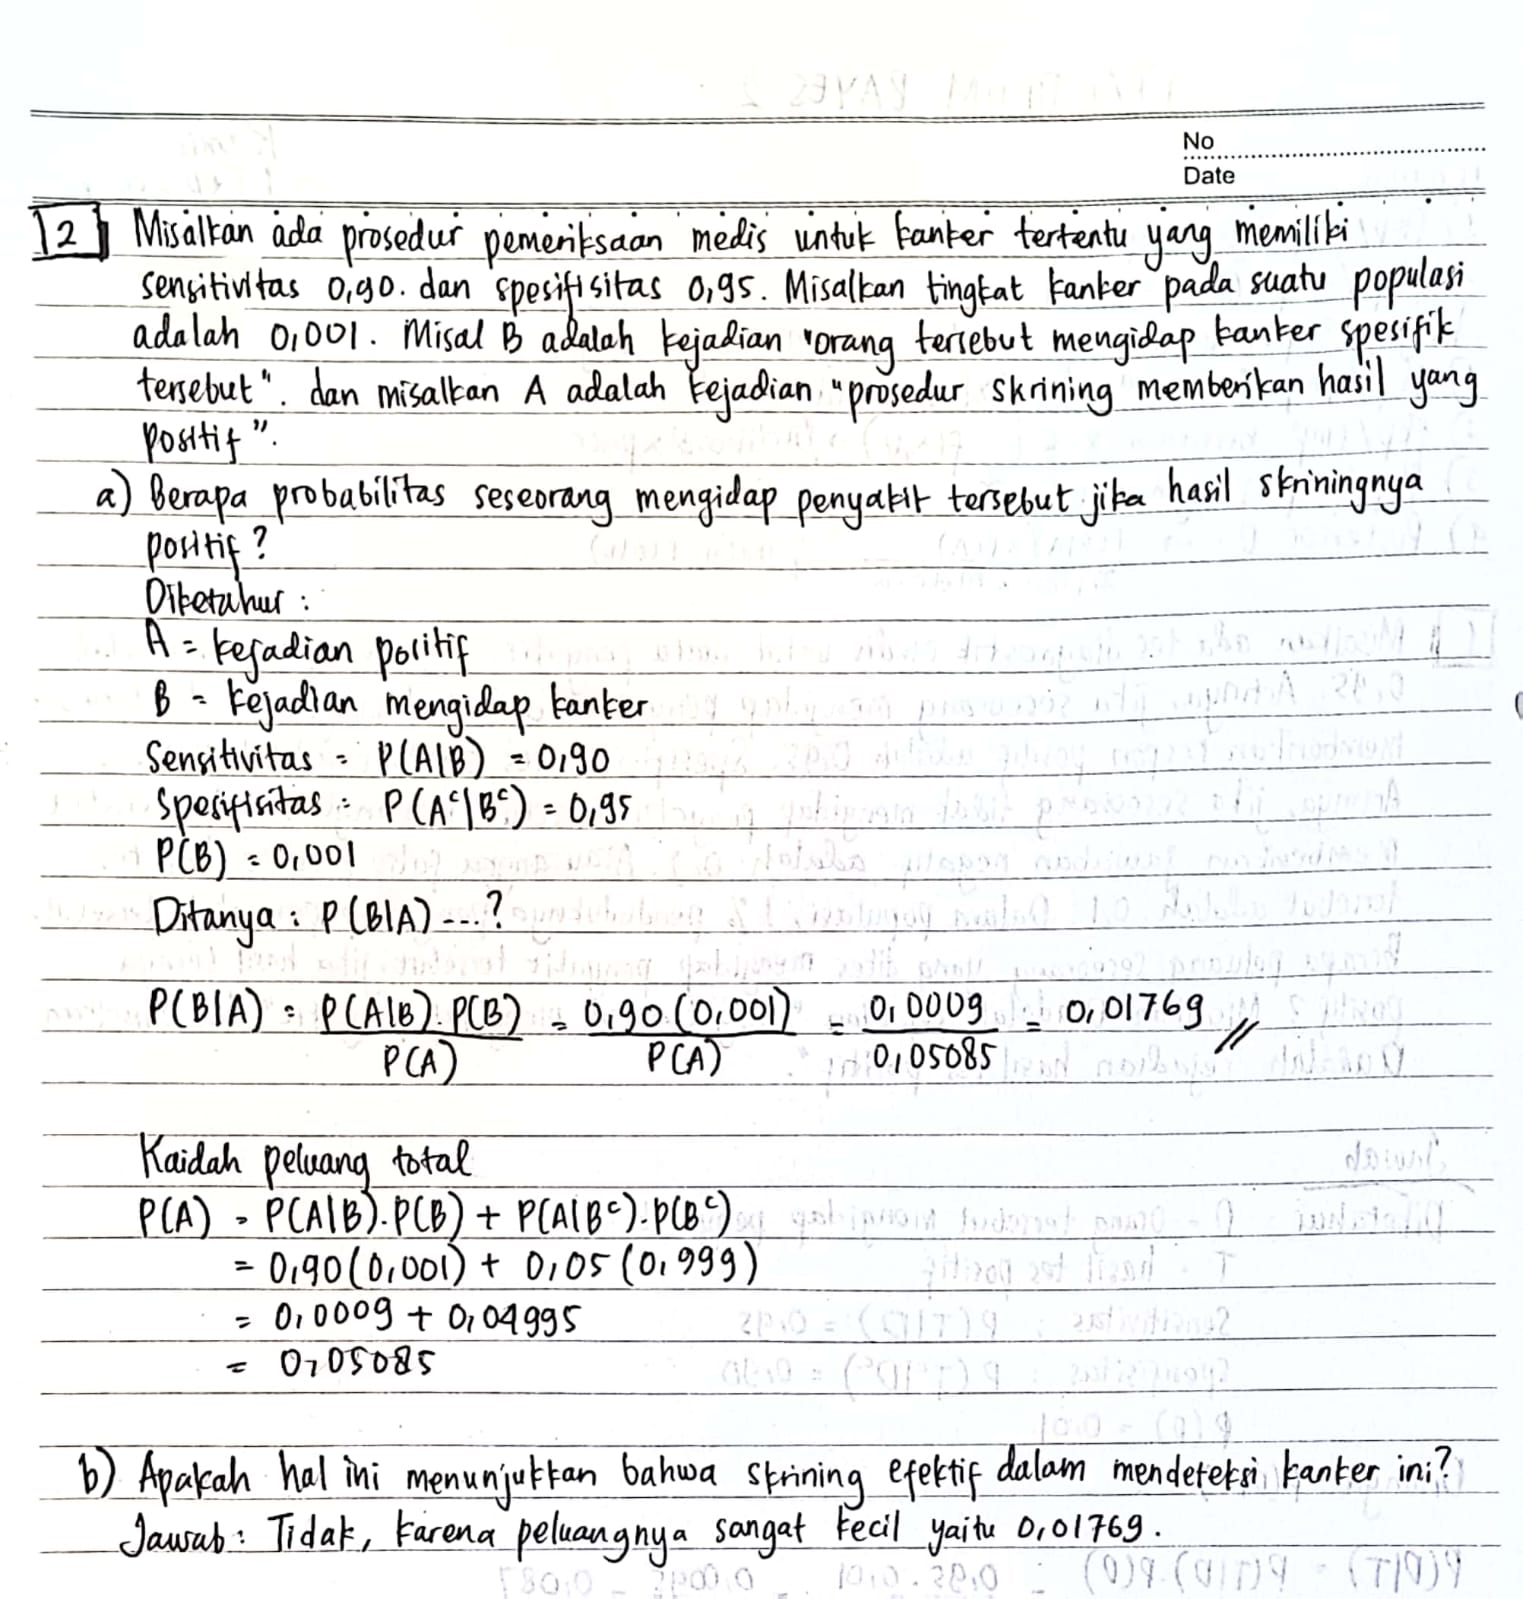 No
Date
2 Misalkan ada prosedur pemeriksaan medis untuk kanker tertentu yang memiliki
sensitivitas 0,90. dan spesifisitas 0,95. Misalkan tingkat kanker pada suatu populasi
adalah 0,001. Misal B adalah kejadian "orang tersebut mengidap kanker spesifik
tersebut". dan misalkan A adalah kejadian "prosedur skrining memberikan hasil yang
positif".
a) Berapa probabilitas seseorang mengidap penyakit tersebut jika hasil skriningnya
positif?
Diketahui :
A = kejadian positif
B = kejadian mengidap kanker
Sensitivitas = P(A|B) = 0,90
Spesifisitas = P(Aᶜ|Bᶜ) = 0,95
P(B) = 0,001
Ditanya : P(B|A) ---?
P(B|A) = P(A|B).P(B) / P(A) = 0,90(0,001) / P(A) = 0,0009 / 0,05085 = 0,01769 //
Kaidah peluang total
P(A) = P(A|B).P(B) + P(A|Bᶜ).P(Bᶜ)
= 0,90(0,001) + 0,05(0,999)
= 0,0009 + 0,04995
= 0,05085
b) Apakah hal ini menunjukkan bahwa skrining efektif dalam mendeteksi kanker ini?
Jawab : Tidak, karena peluangnya sangat kecil yaitu 0,01769.